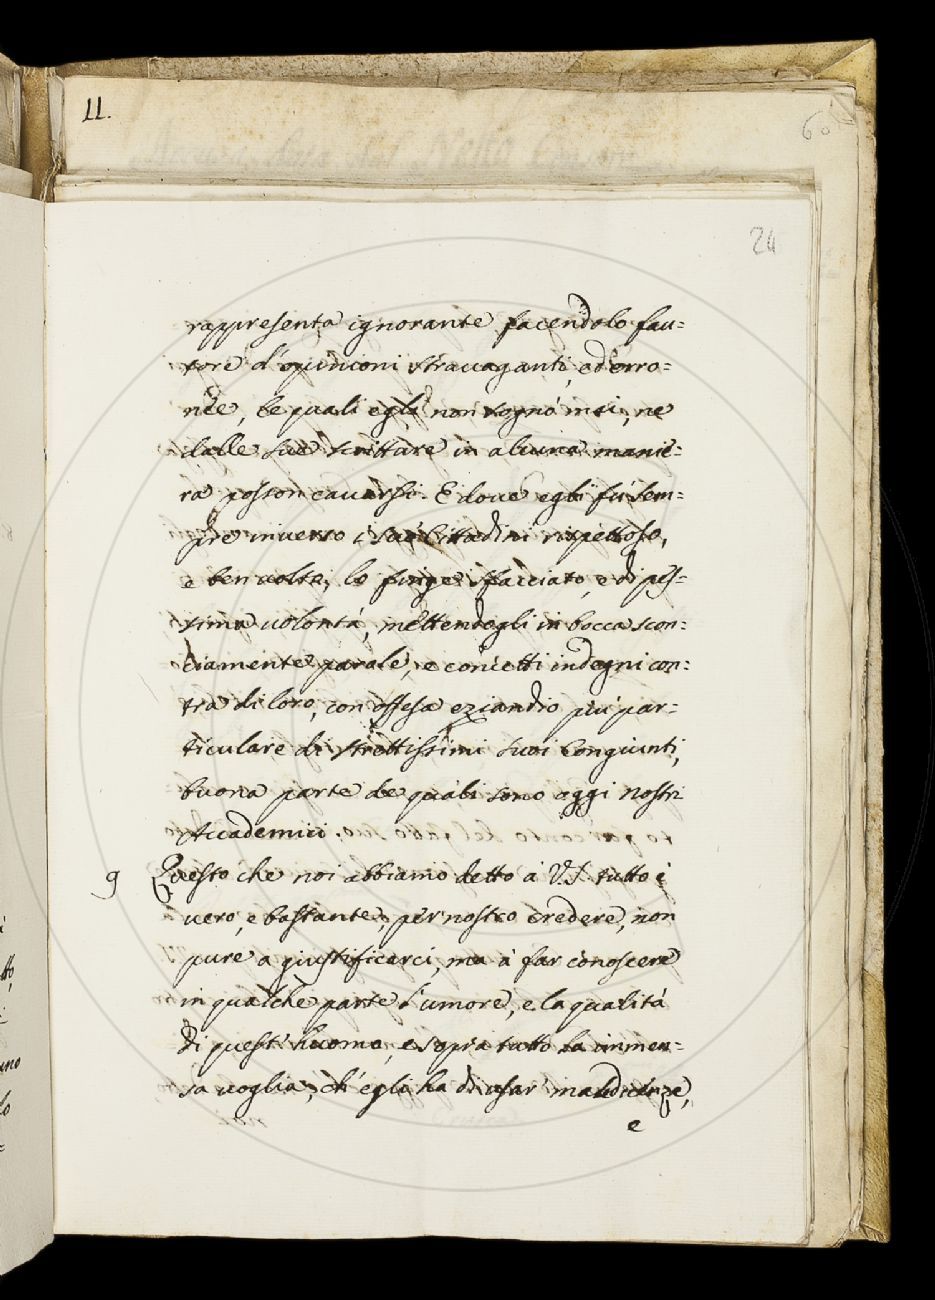 11.
60
24
rappresenta ignorante, facendolo fau=
tore d'opinioni stravaganti, ed erro=
nee, le quali egli non sognò mai, ne
dalle sue scritture in alcuna manie=
ra posson cavarsi. E dove egli fù sem=
pre inverso i suoi Cittadini rispettoso,
e benvolto, lo finge sfacciato, e di pes=
sima volontà, mettendogli in bocca scon=
ciamente parole, e concetti indegni con=
tra di loro, con offesa eziandio più par=
ticulare di strettissimi suoi congiunti,
buona parte de quali sono oggi nostri
Accademici.
9 Questo che noi abbiamo detto à V.S. tutto è
vero, e bastante, per nostro credere, non
pure a giustificarci, ma à far conoscere
in qualche parte l'umore, e la qualità
di quest'huomo, e sopra tutto la immen=
sa voglia, ch'egli ha di usar maldicenze,
e